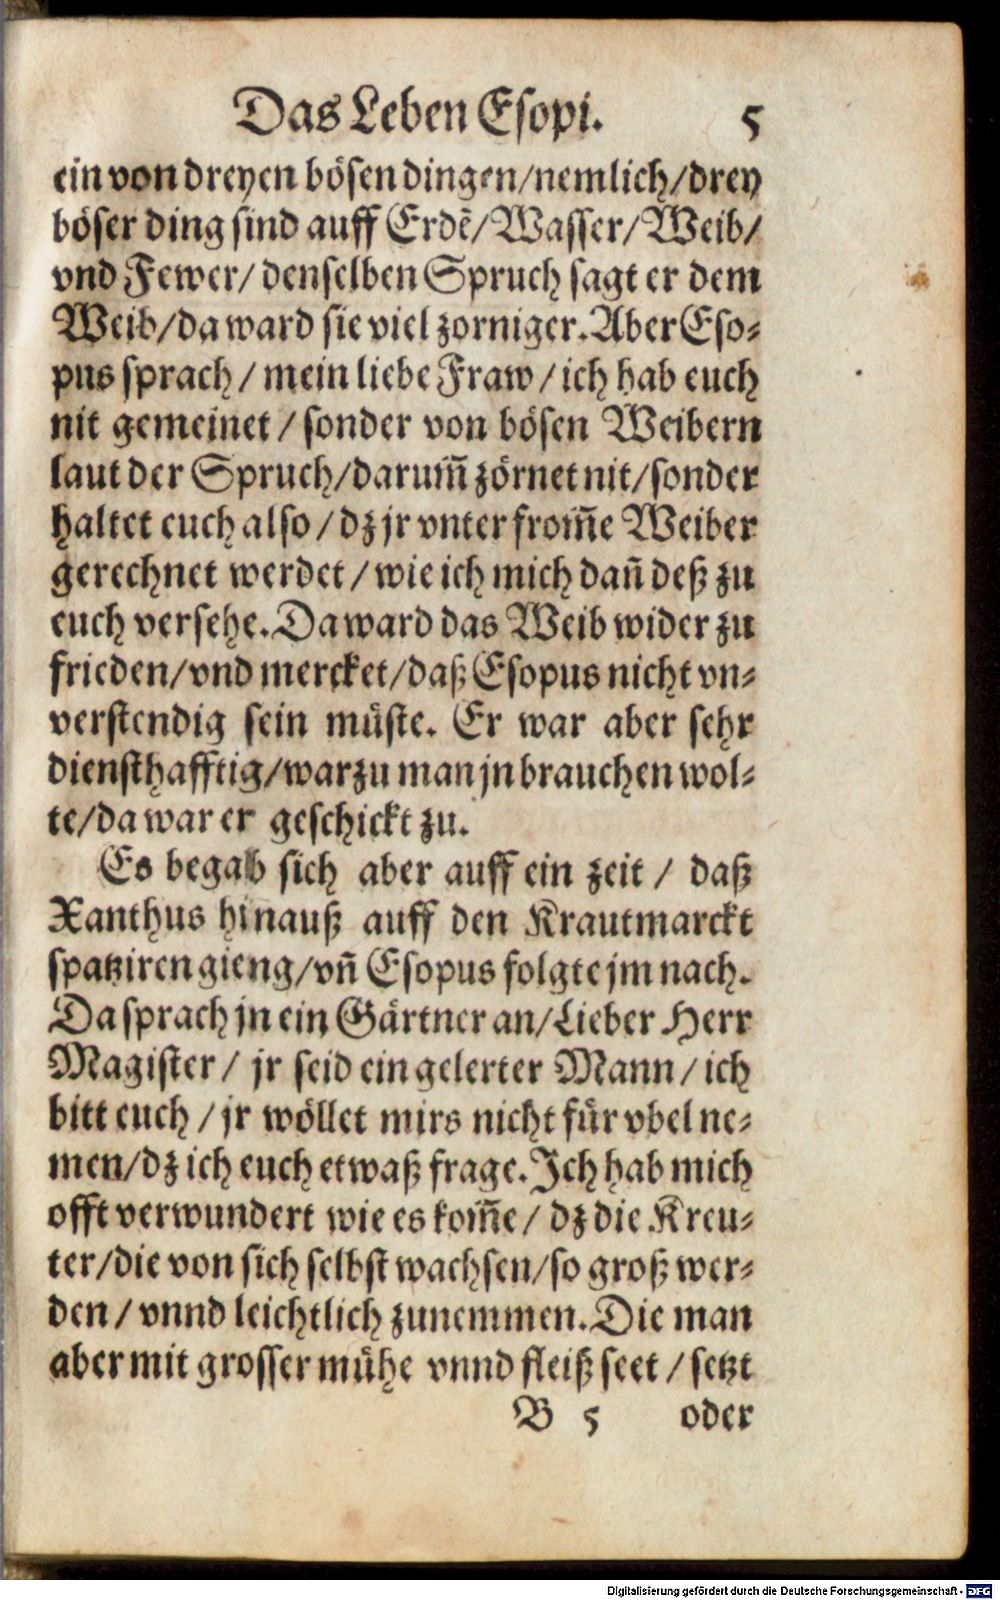 Das Leben Esopi. 5
ein von dreyen bösen dingen/nemlich/drey
böser ding sind auff Erdẽ/Wasser/Weib/
vnd Fewer/denselben Spruch sagt er dem
Weib/da ward sie viel zorniger. Aber Eso⸗
pus sprach/mein liebe Fraw/ich hab euch
nit gemeinet/sonder von bösen Weibern
laut der Spruch/darum̃ zörnet nit/sonder
haltet euch also/dz jr vnter from̃e Weiber
gerechnet werdet/wie ich mich dañ deß zu
euch versehe. Da ward das Weib wider zu
frieden/vnd mercket/daß Esopus nicht vn⸗
verstendig sein müste. Er war aber sehr
diensthafftig/warzu man jn brauchen wol⸗
te/da war er geschickt zu.
Es begab sich aber auff ein zeit/ daß
Xanthus hinauß auff den Krautmarckt
spatziren gieng/vñ Esopus folgte jm nach.
Da sprach jn ein Gärtner an/Lieber Herr
Magister/ jr seid ein gelerter Mann/ich
bitt euch/jr wöllet mirs nicht für vbel ne⸗
men/dz ich euch etwaß frage. Ich hab mich
offt verwundert wie es kom̃e/dz die Kreu⸗
ter/die von sich selbst wachsen/so groß wer⸗
den/vnnd leichtlich zunemmen. Die man
aber mit grosser mühe vnnd fleiß seet/setzt
B 5 oder
Digitalisierung gefördert durch die Deutsche Forschungsgemeinschaft - DFG